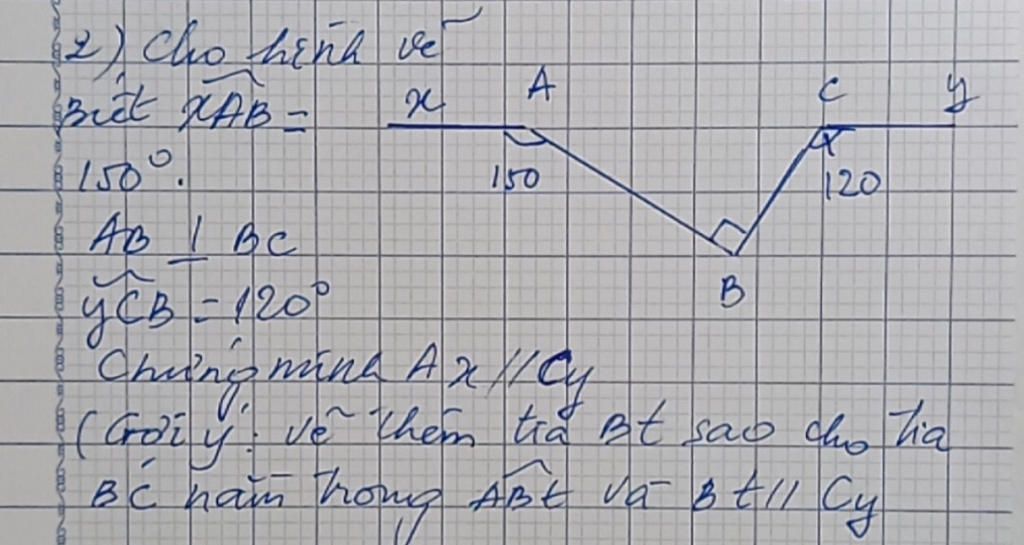 2) Cho hình vẽ
Biết xAB =
150°.
AB ⊥ BC
yCB = 120°
x A C y
150 120
B
Chứng minh Ax // Cy
(Gợi ý: vẽ thêm tia Bt sao cho tia
BC nằm trong ABt và Bt // Cy